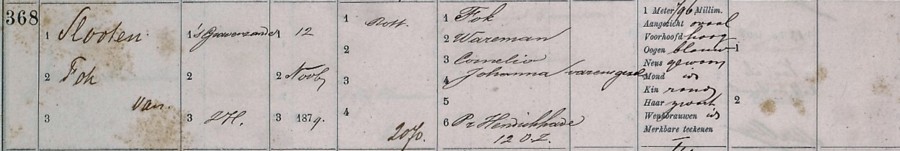 368
1 Slooten
2 Fok
van
3
1 's Gravezande
2
3 ZH.
1 12
2 Novb
3 1879.
1 Rott.
2
3
4 2070.
1 Fok
2 Wareman
3 Cornelia
4 Johanna varensgezel
5
6 Pr Hendrikkade
12 O.Z.
1 Meter 796 Millim.
Aangezicht ovaal
Voorhoofd hoog
Oogen blauw
Neus gewoon
Mond id
Kin rond
Haar zwart
Wenkbrauwen id
Merkbare teekenen
1
2